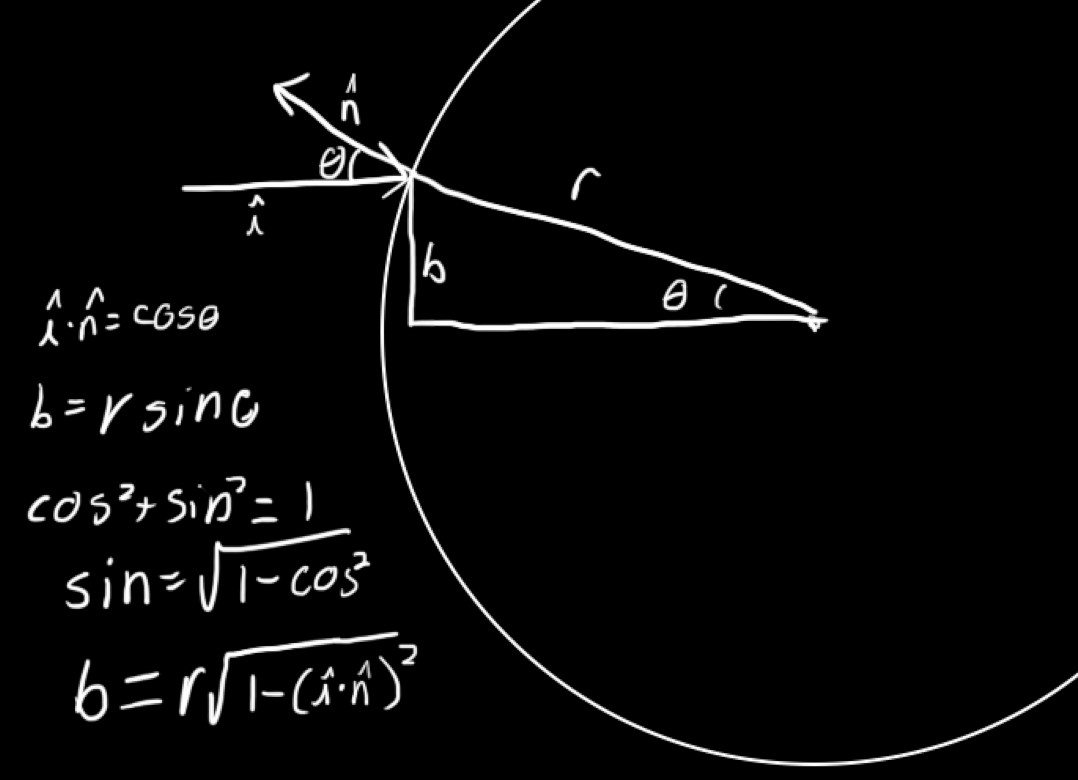 n̂
θ
r
î
b
θ
î·n̂=cosθ
b=r sinθ
cos²+sin²=1
sin=√1-cos²
b=r√1-(î·n̂)²